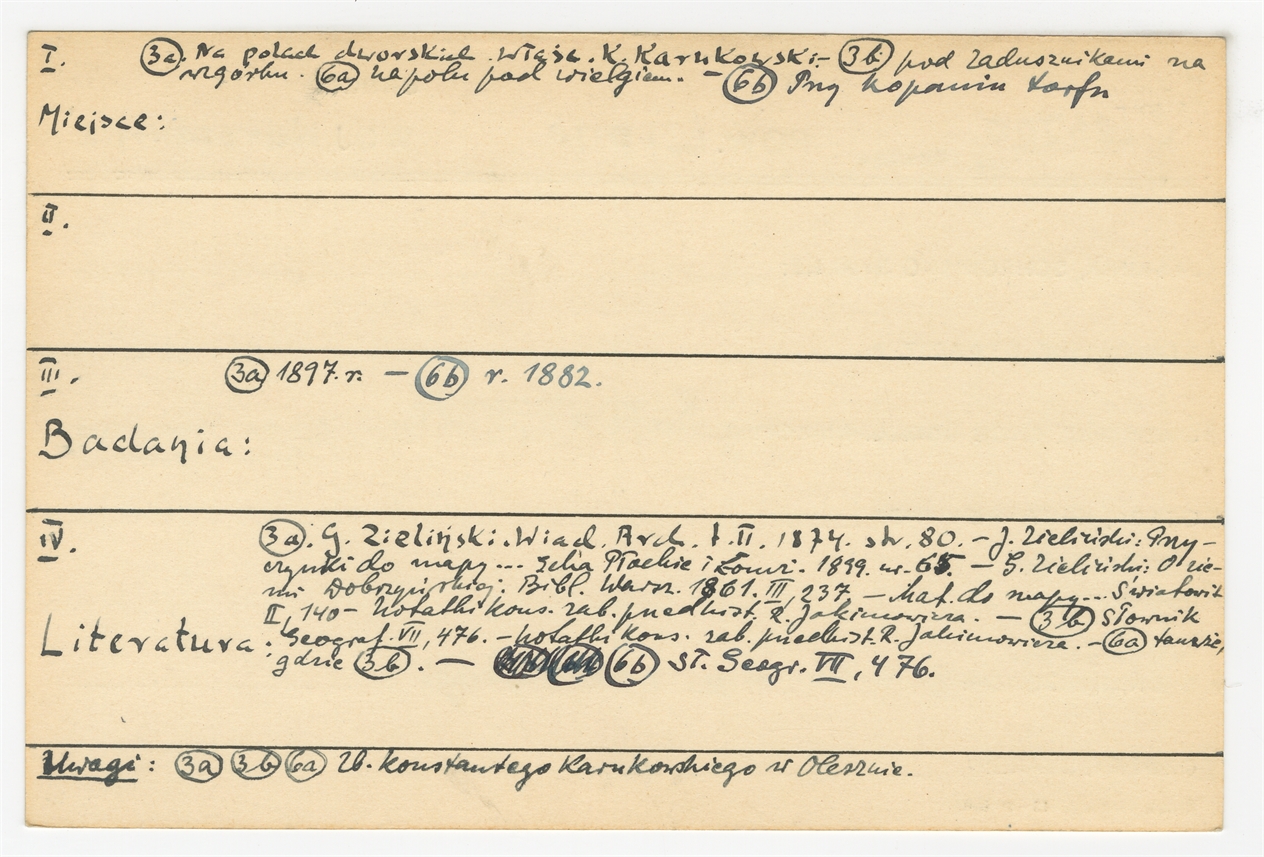 I. (3a). Na polach dworskich własn. K. Karnkowski - (3b) pod Zadusznikami na
wzgórku. (6a) na polu pod Wielgiem. - (6b) Przy kopaniu torfu
Miejsce:
II.
III. (3a) 1897. r. - (6b) r. 1882.
Badania:
IV. (3a). G. Zieliński. Wiad. Arch. t. II. 1874. str. 80. - J. Zieliński: Przy-
czynki do mapy ... Echa Płockie i Łomż. 1899. nr. 65. - G. Zieliński: O zie-
mi Dobrzyńskiej: Bibl. Warsz. 1861. III, 237 - Mat. do mapy ... Światowit
II, 140 - Notatki kons. zab. przedhist. R. Jakimowicza. - (3b) Słownik
Literatura: Geograf. VII, 476. - Notatki kons. zab. przedhist. R. Jakimowicza. - (6a) tamże,
gdzie (3b). - (6b) Sł. Geogr. VII, 476.
Uwagi: (3a) (3b) (6a) Zb. Konstantego Karnkowskiego w Olesznie.